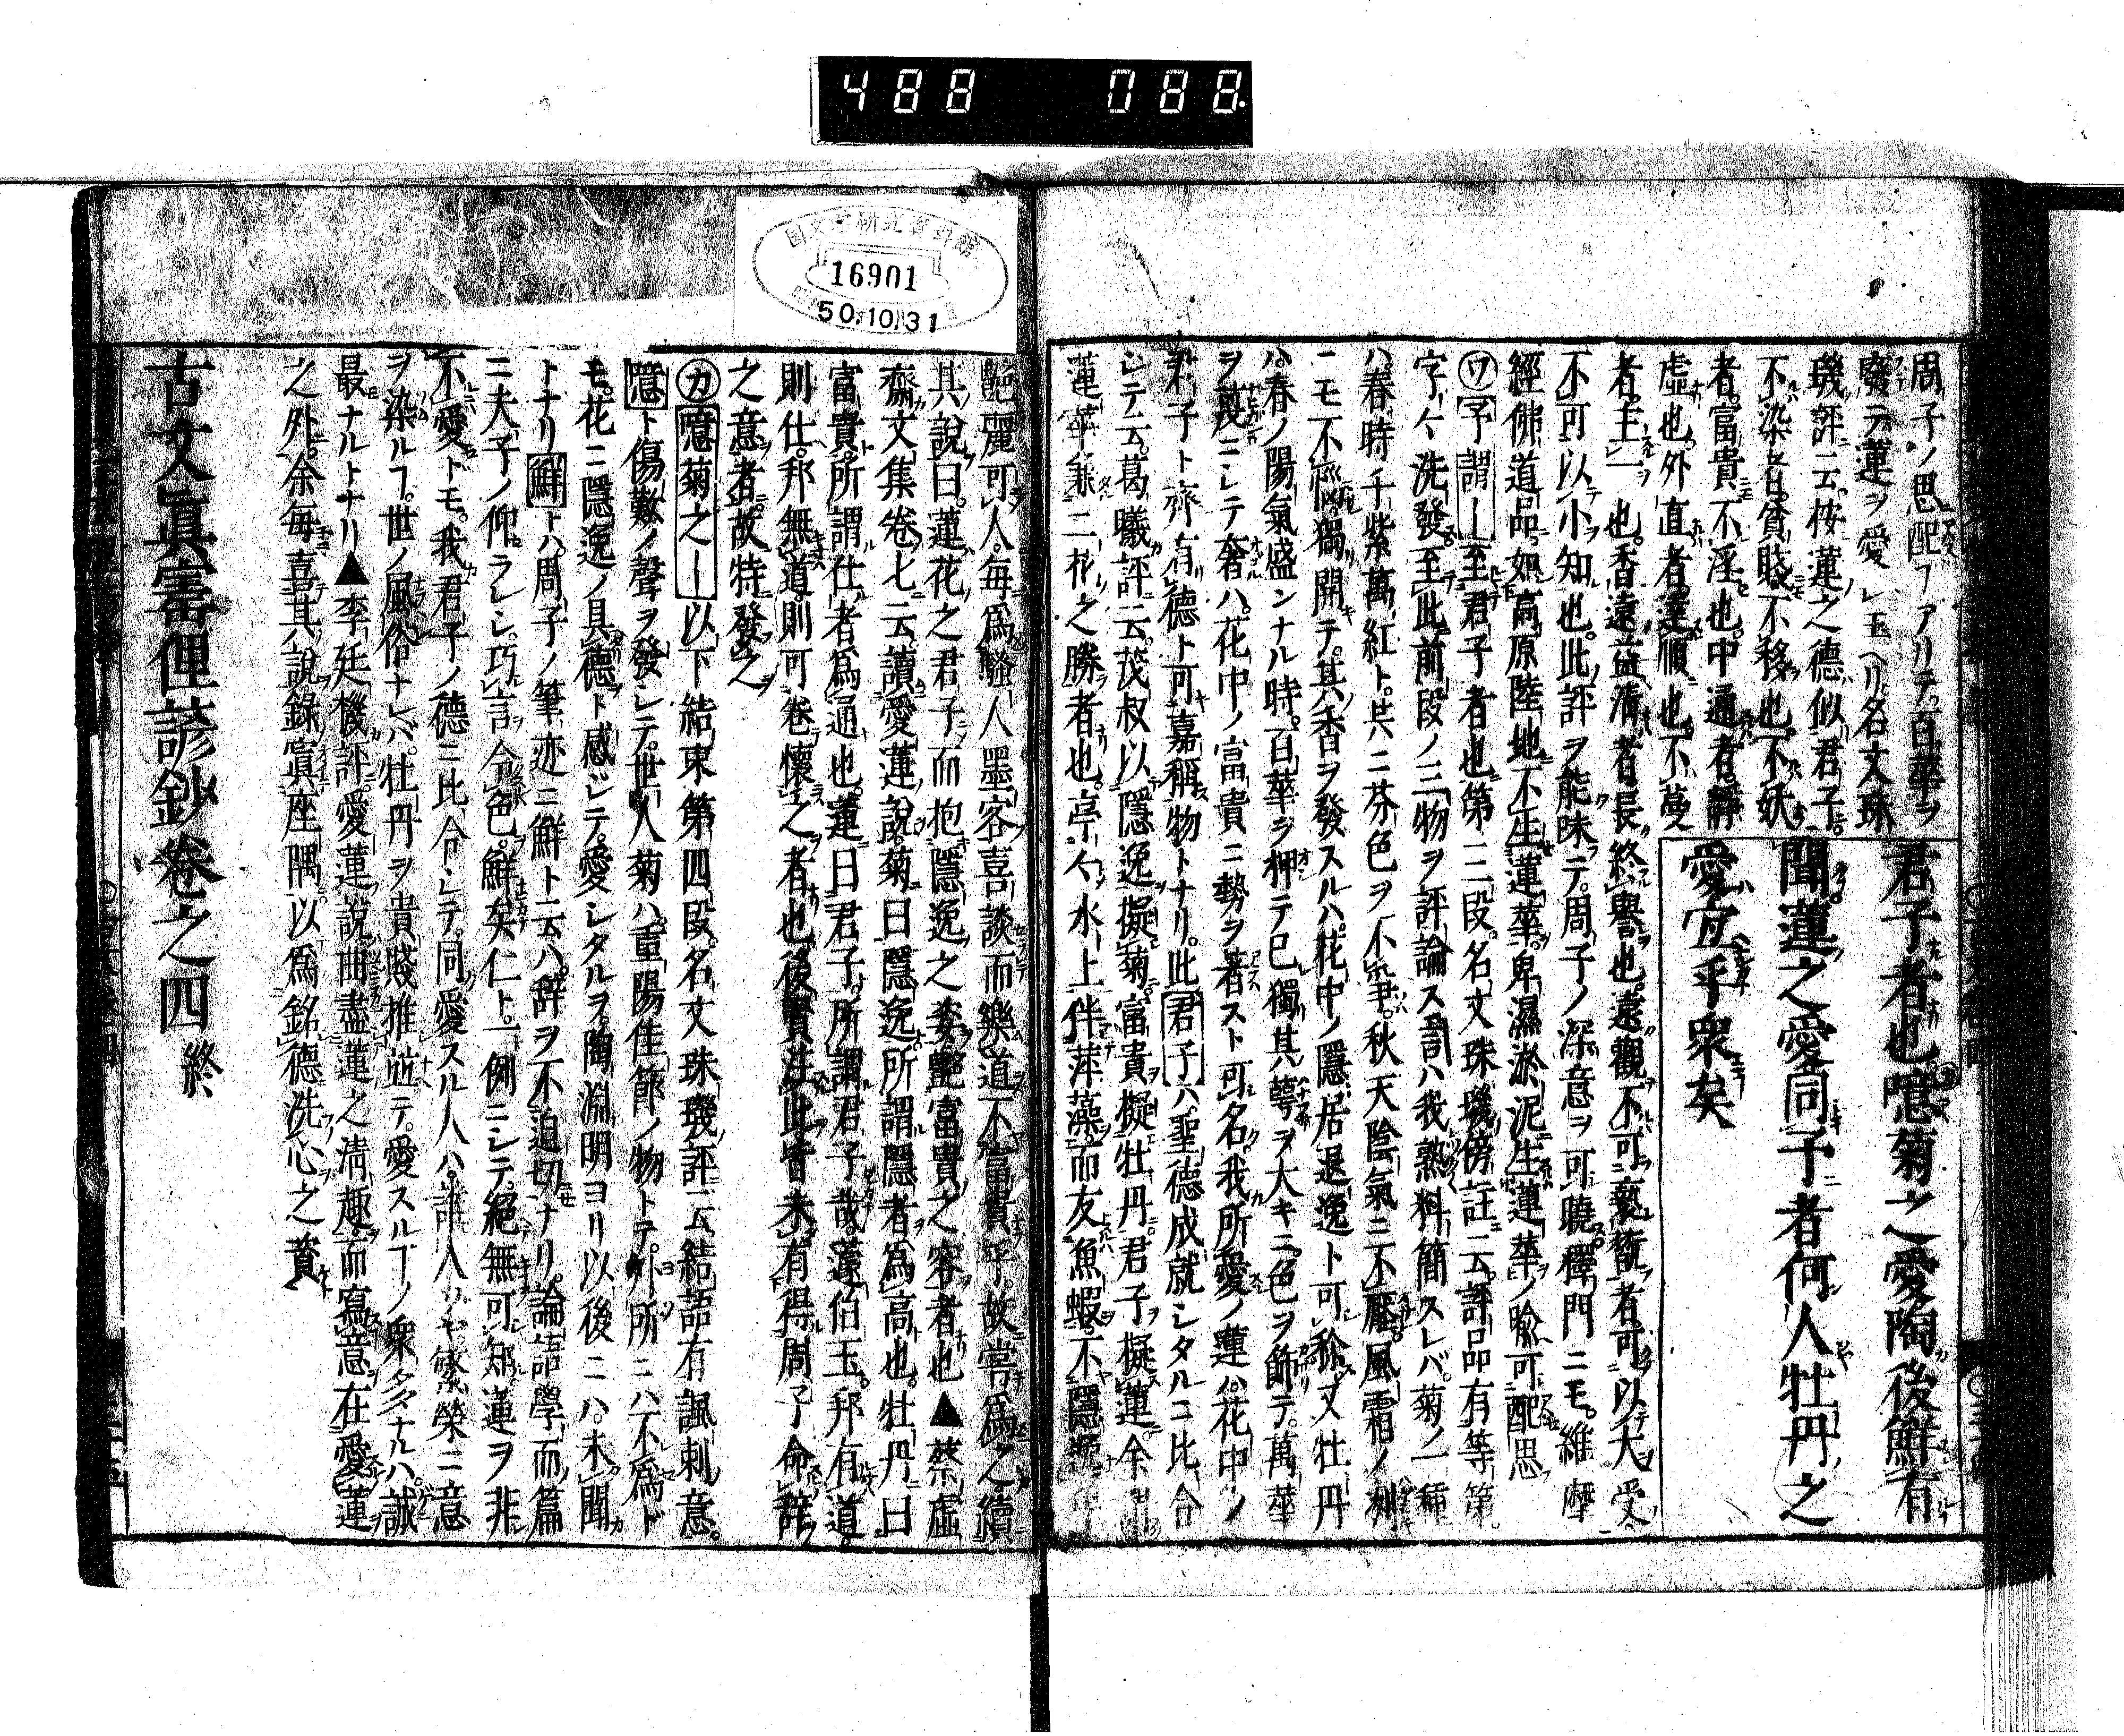 488 088
國文学研究資料館
16901
50.10.31
君子者也噫菊之愛陶後鮮有
聞蓮之愛同予者何人牡丹之
愛宜乎衆矣
周子ノ思配フアリテ百華ヲ
廢テ蓮ヲ愛レ玉ヘリ名文珠
璣評ニ云按蓮之德似君子
不染者貧賤不移也不妖
者富貴不淫也中通者靜
虛也外直者達順也不蔓
者主一也香遠益清者長終譽也遠觀不可褻翫者可以大受
不可以小知也此評ヲ能味テ周子ノ深意ヲ可曉釋門ニモ維摩
經佛道品如高原陸地不生蓮華卑濕淤泥生蓮華ノ喩可配思
㋻予謂ー至君子者也第三段名文珠璣傍註ニ云評品有等第
字々洗發至此前段ノ三物ヲ評論ス言ハ我熟料簡スレバ菊ノ一種
ハ春時千紫萬紅ト共ニ芬色ヲ不爭秋天陰氣ニ不壓風霜ノ刺
ニモ不獨開テ其香ヲ發スルハ花中ノ隱居退逸ト可称又牡丹
ハ春ノ陽氣盛ンナル時百華ヲ押テ已獨其萼ヲ大キニ色ヲ飾テ萬華
ヲ蔑ニレテ奢ハ花中ノ富貴ニ勢ヲ著スト可名我所愛ノ蓮ハ花中ノ
君子ト齊有德ト可嘉稱物トナリ此君子ハ聖德成就シタルニ比合
シテ云葛曦評ニ云茂叔以隱逸擬菊富貴擬牡丹君子擬蓮余
蓮華兼二花之勝者也亭々水上伴萍藻而友魚蝦不隱
艷麗可人每爲騷人墨客喜談而樂道不富貴乎故嘗爲之續
其說曰蓮花之君子而抱隱逸之姿艷富貴之容者也▲蔡虛
齋文集卷七ニ云讀愛蓮說菊曰隱逸所謂隱者爲高也牡丹曰
富貴所謂仕者爲通也蓮曰君子所謂君子哉蘧伯玉邦有道
則仕邦無道則可卷懷之者也後賢註此皆未有得周子命辭
之意者故特發之
㋕噫菊之ー以下結束第四段名文珠璣評ニ云結語有諷刺意
噫ト傷歎ノ聲ヲ發シテ世人菊ハ重陽佳節ノ物トテ外所ニハ不爲ド
モ花ニ隱逸ノ具德ト感ジテ愛シタルヲ陶淵明ヨリ以後ニハ未聞
トナリ鮮トハ周子ノ筆迹ニ鮮ト云ハ辞ヲ不迫切ナリ論語學而篇
ニ夫子ノ仰ラレシ巧言令色鮮矣仁ト一例ニシテ絕無可知蓮ヲ非
不愛ドモ我君子ノ德ニ比合シテ同愛スル人ハ誰人リヤ繁榮ニ意
ヲ染ルフ世ノ風俗ナレバ牡丹ヲ貴賤推並テ愛スルフノ衆多ナルハ誠
最ナルトナリ▲李廷機評愛蓮說曲盡蓮之清趣而寫意在愛蓮
之外余每喜其說錄寘座隅以爲銘德洗心之資
古文眞寳俚諺鈔卷之四 終